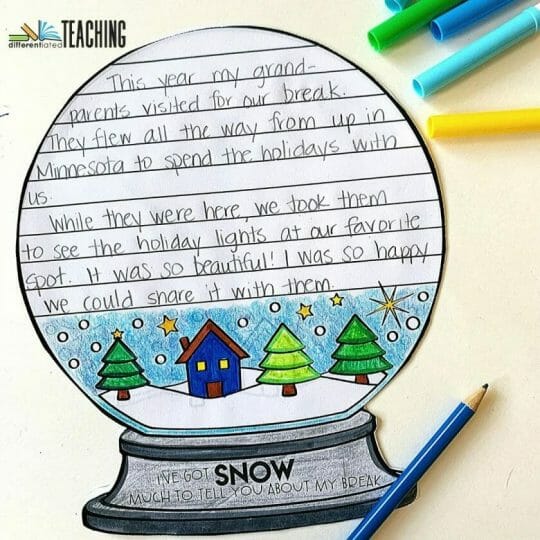 differentiated TEACHING
This year my grand-
parents visited for our break.
They flew all the way from up in
Minnesota to spend the holidays with
us.
While they were here, we took them
to see the holiday lights at our favorite
spot. It was so beautiful! I was so happy
we could share it with them.
I'VE GOT SNOW
MUCH TO TELL YOU ABOUT MY BREAK